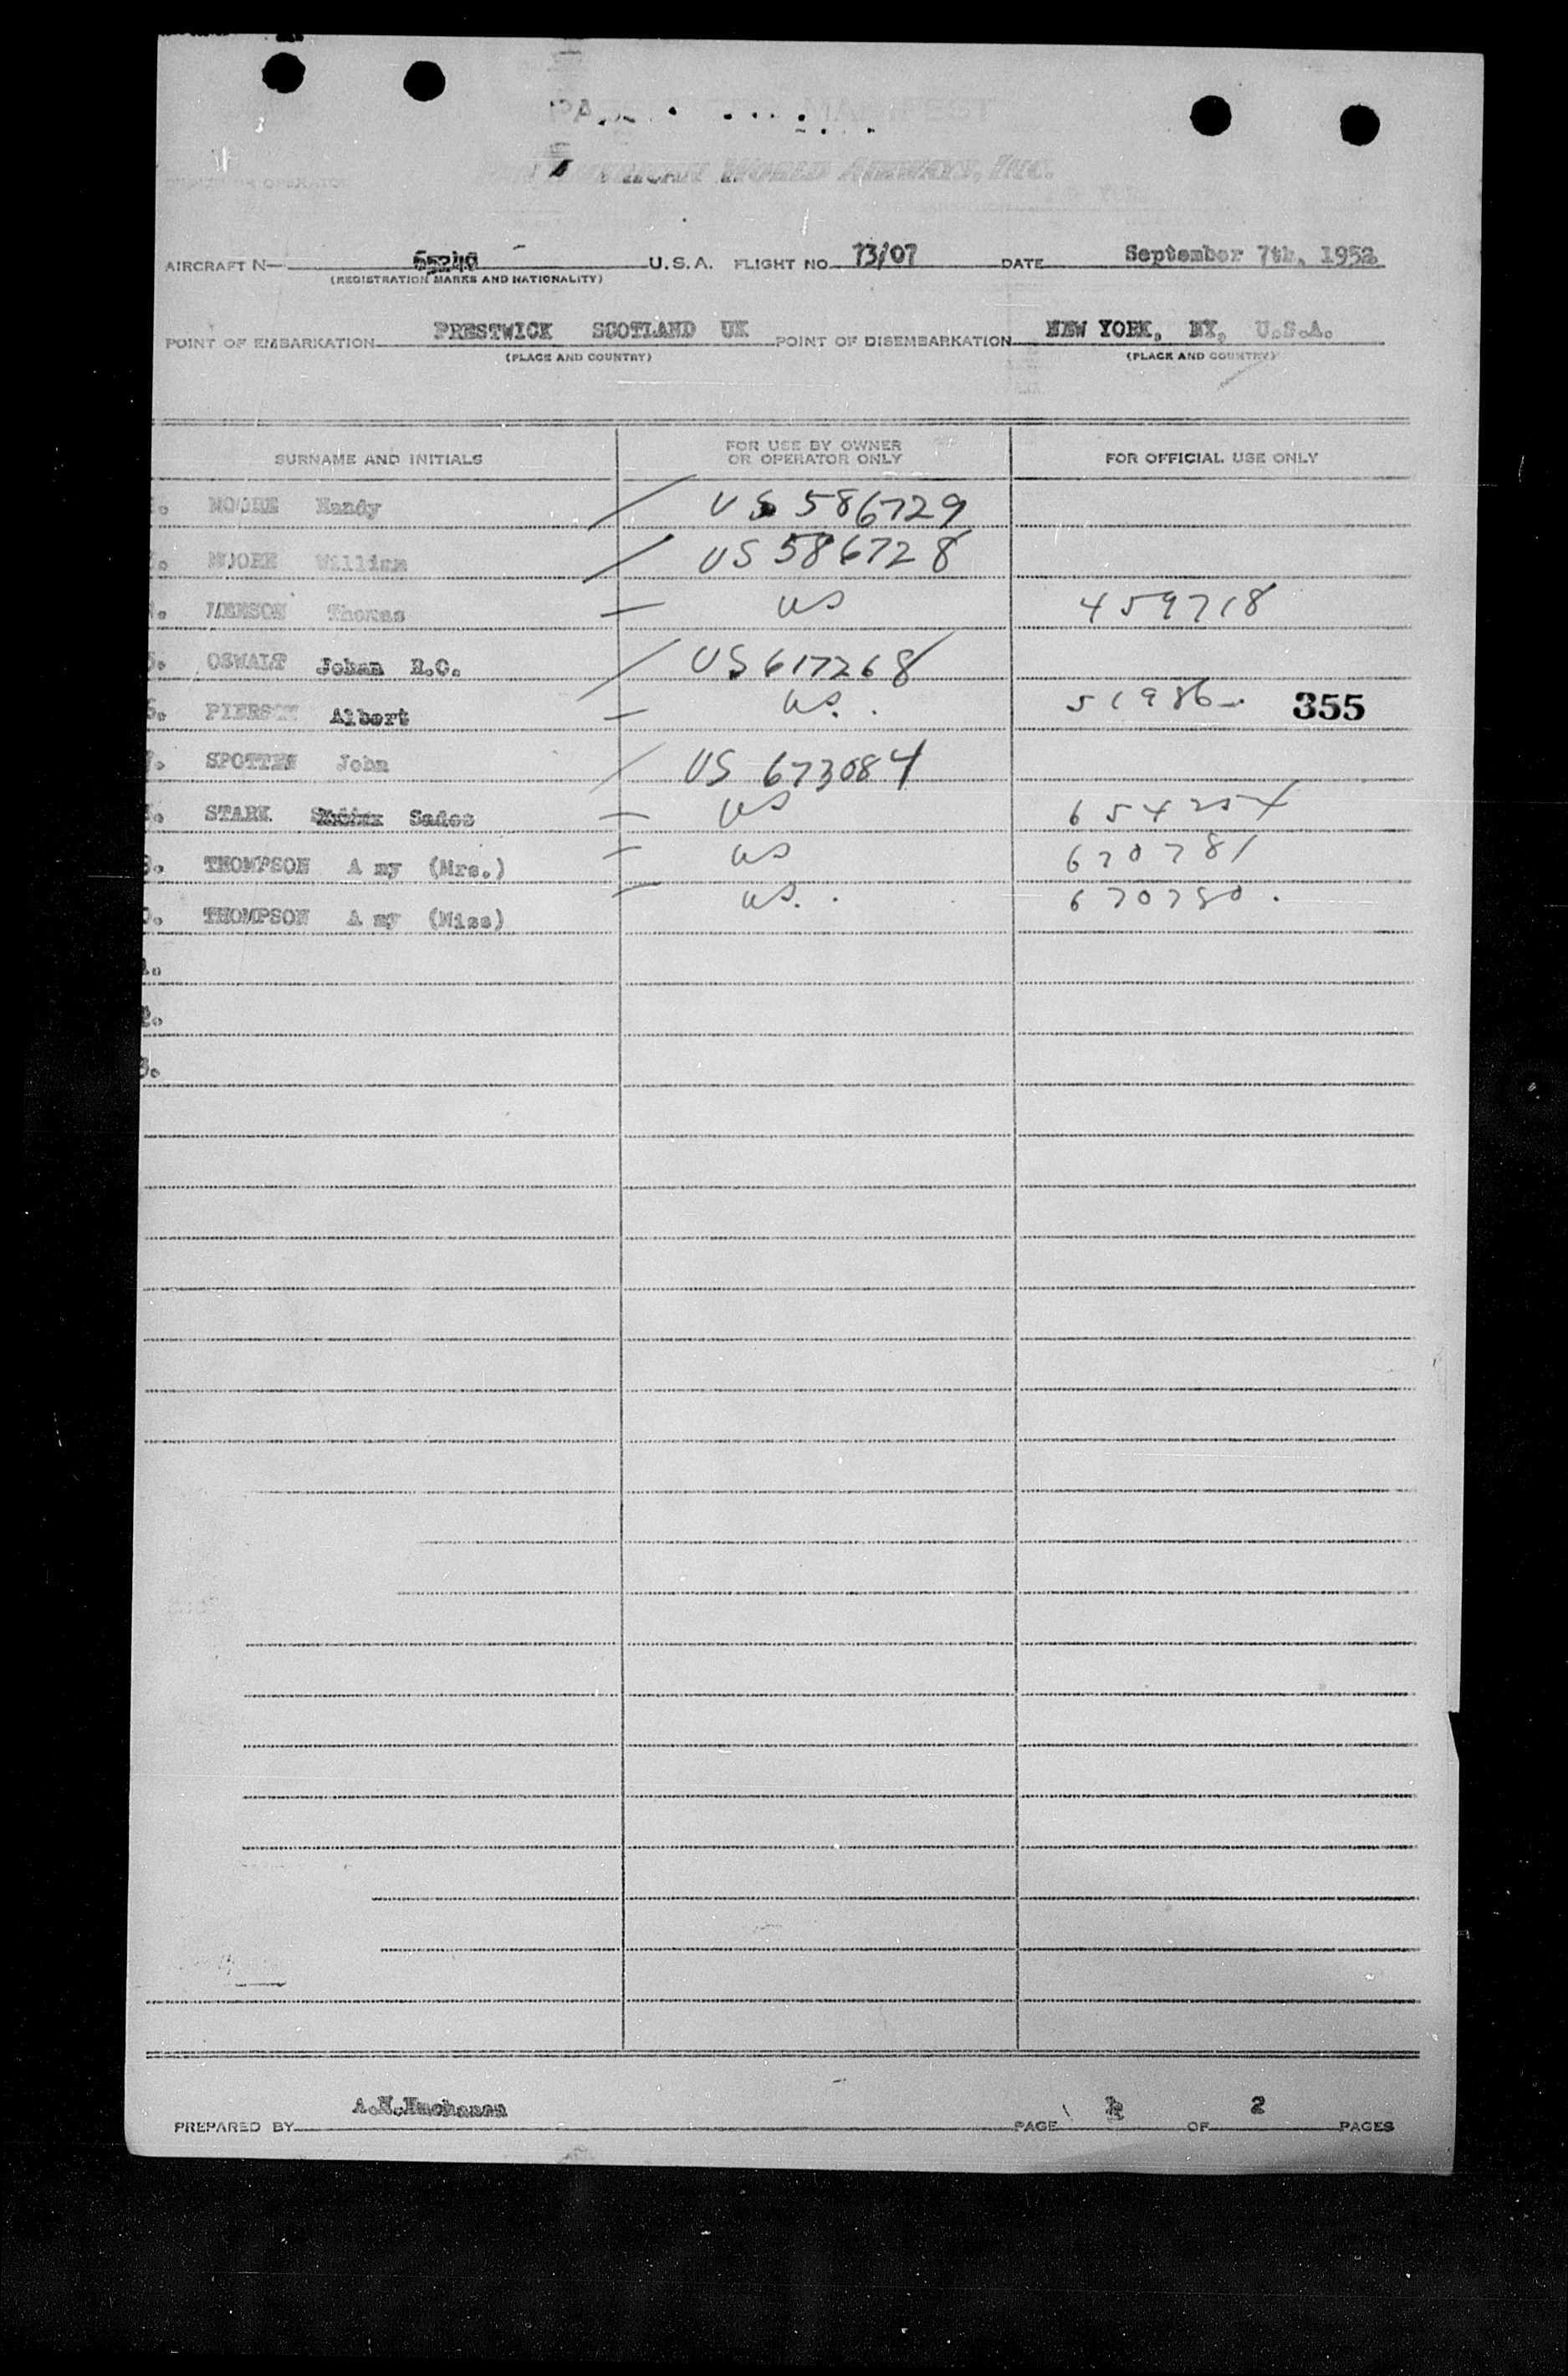 MANIFEST
WORLD AIRWAYS, INC.
AIRCRAFT N— U.S.A. FLIGHT NO 73/07 DATE September 7th, 1952
(REGISTRATION MARKS AND NATIONALITY)
POINT OF EMBARKATION PRESTWICK SCOTLAND UK POINT OF DISEMBARKATION NEW YORK, NY, U.S.A.
(PLACE AND COUNTRY) (PLACE AND COUNTRY)
SURNAME AND INITIALS FOR USE BY OWNER OR OPERATOR ONLY FOR OFFICIAL USE ONLY
MOORE Handy / US 586729
MOORE William / US 586728
Thomas — US 459718
OSWALT Johan H.C. / US 617268
Albert — US. 51986 355
SPOTTEN John / US 673084
STARK Sades — US
THOMPSON A my (Mrs.) — US 670781
THOMPSON A my (Miss) — US. 670780.
PREPARED BY PAGE OF 2 PAGES